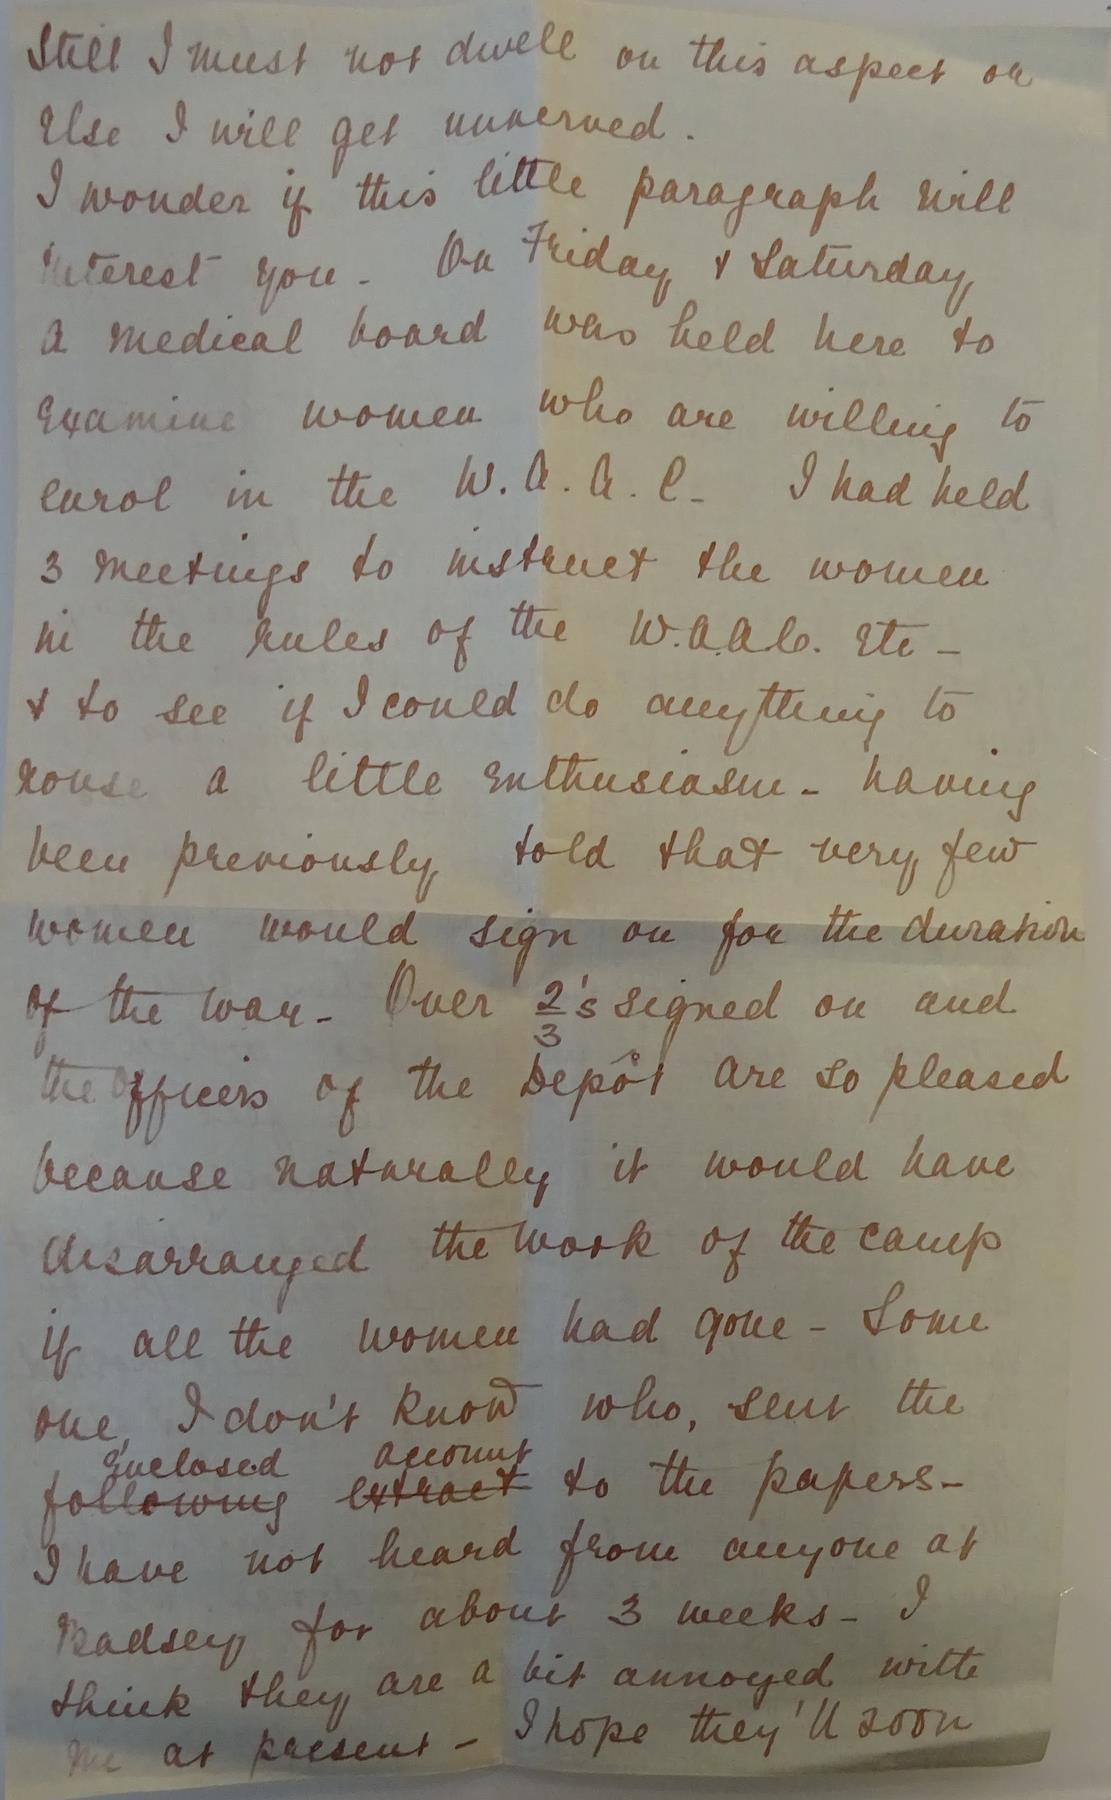 Still I must not dwell on this aspect or
Else I will get unnerved.
I wonder if this little paragraph will
interest you - On Friday & Saturday
a medical board was held here to
Examine women who are willing to
enrol in the W.A.A.C - I had held
3 meetings to instruct the women
in the rules of the W.A.A.C. Etc -
& to see if I could do anything to
rouse a little Enthusiasm - having
been previously told that very few
women would sign on for the duration
of the war - Over 2/3's signed on and
the Officers of the Depôt are so pleased
because naturally it would have
disarranged the work of the camp
if all the women had gone - Some
one, I don't know who, sent the
Enclosed account
following extract to the papers -
I have not heard from anyone at
Badsey for about 3 weeks - I
think they are a bit annoyed with
me at present - I hope they'll soon